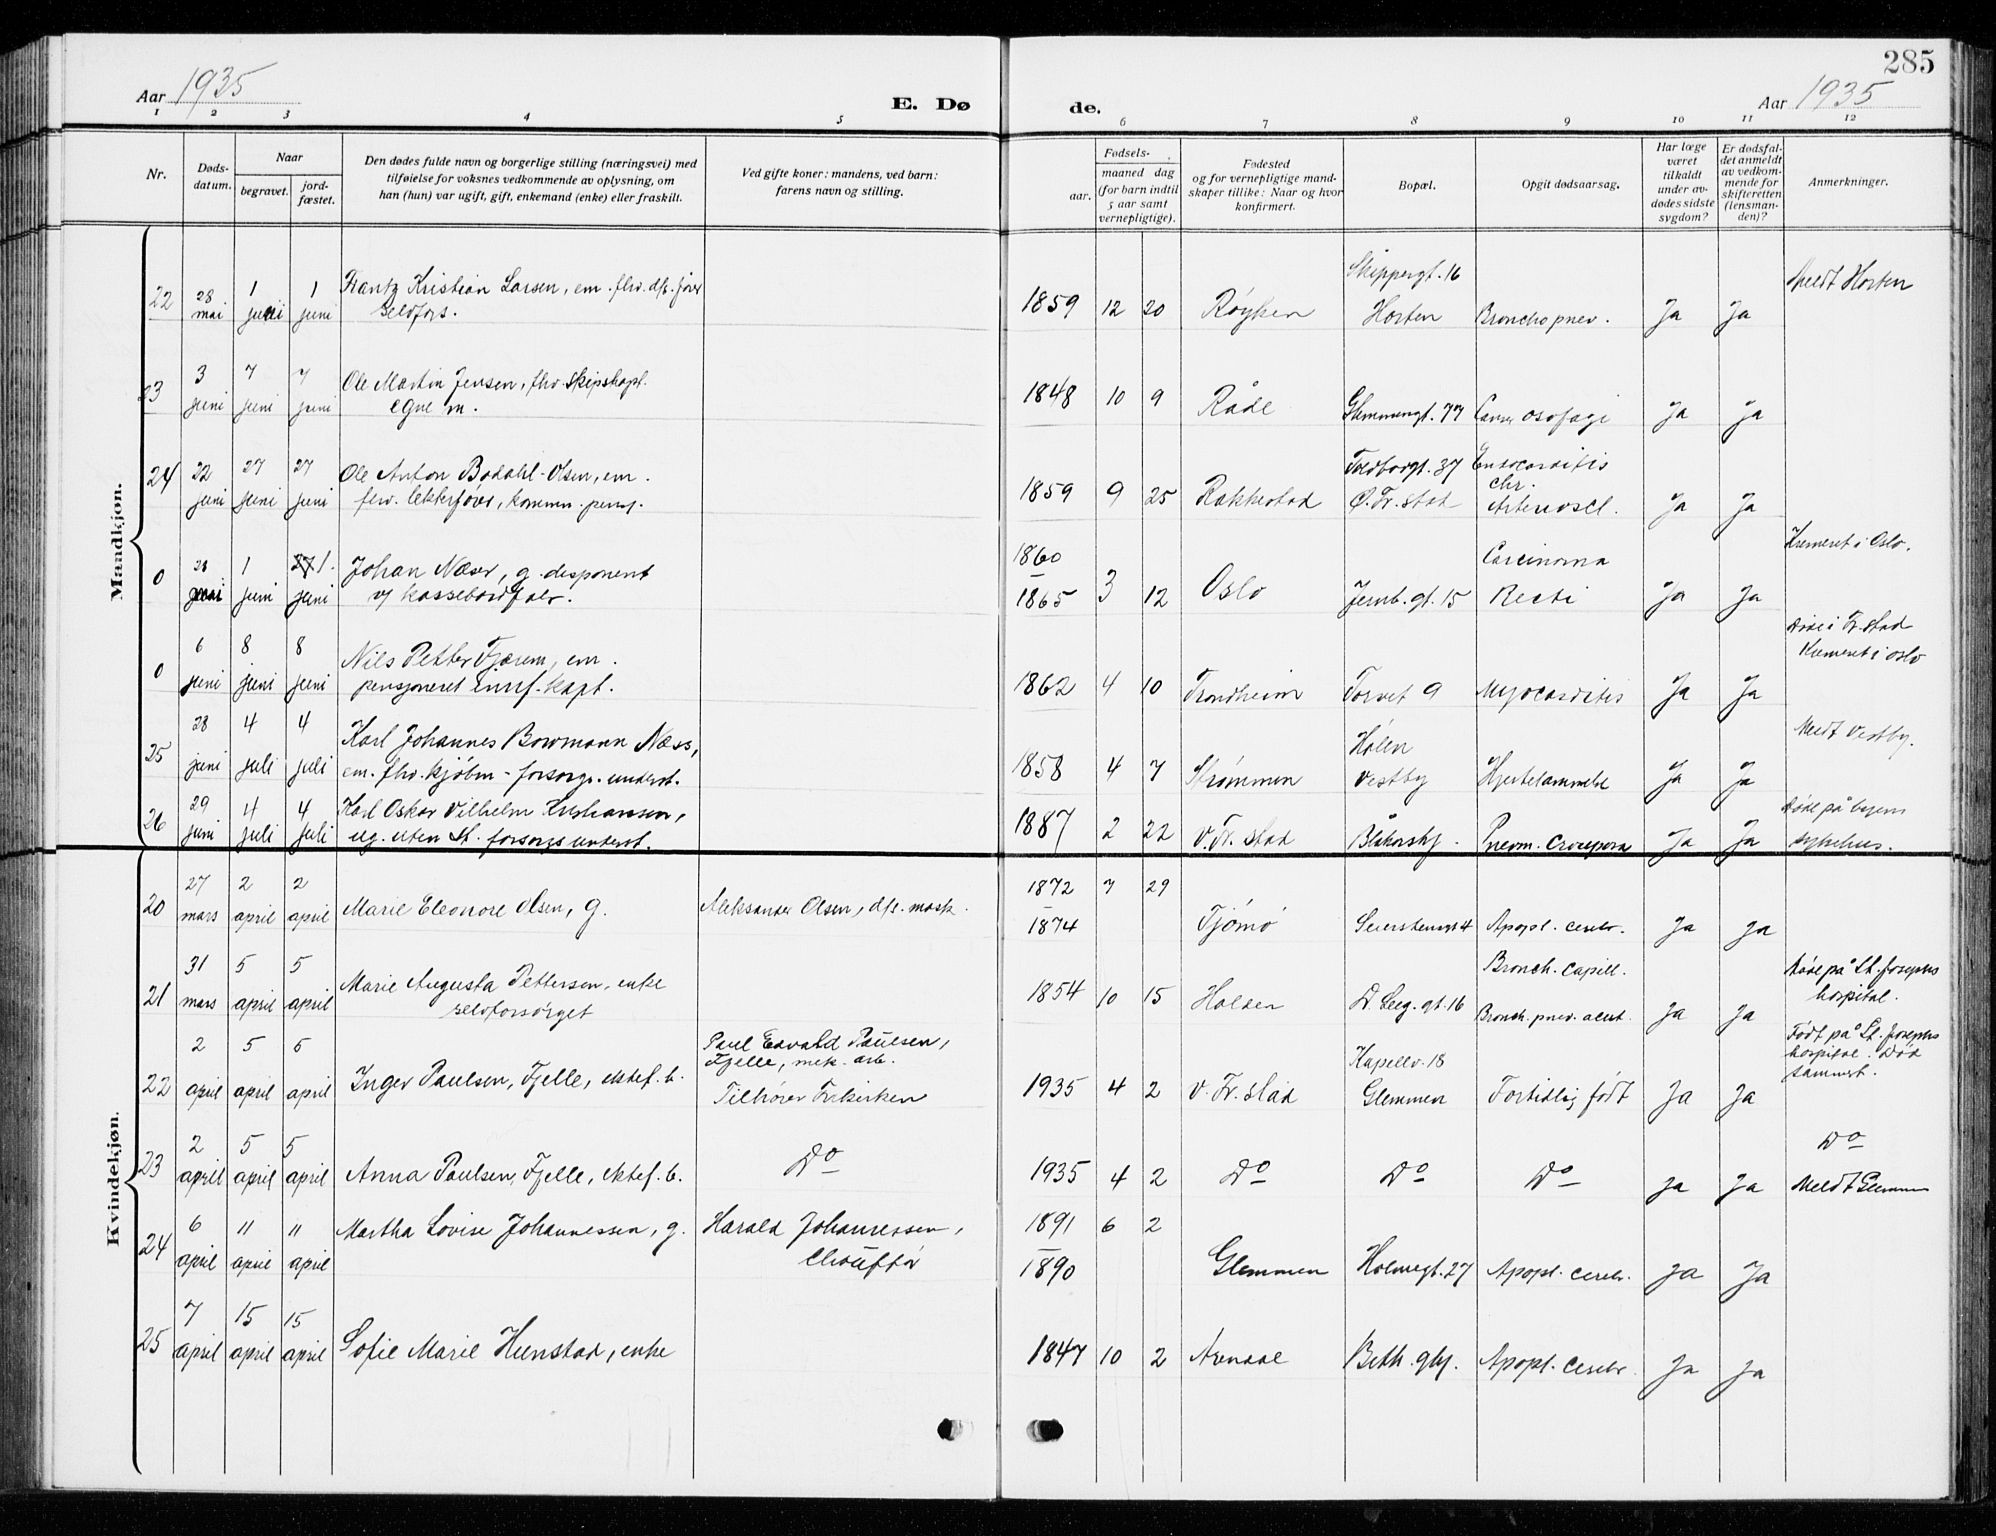 285
Aar 1935
E. Dø
de.
Aar 1935
1 2 3 4 5 6 7 8 9 10 11 12
Nr.
Døds-
datum.
Naar
begravet.
jord-
fæstet.
Den dødes fulde navn og borgerlige stilling (næringsvei) med
tilføielse for voksnes vedkommende av oplysning, om
han (hun) var ugift, gift, enkemand (enke) eller fraskilt.
Ved gifte koner: mandens, ved barn:
farens navn og stilling.
Fødsels-
aar.
maaned dag
(for barn indtil
5 aar samt
vernepligtige).
Fødested
og for vernepligtige mand-
skaper tillike: Naar og hvor
konfirmert.
Bopæl.
Opgit dødsaarsag.
Har læge
været
tilkaldt
under av-
dødes sidste
sygdom?
Er dødsfal-
det anmeldt
av vedkom-
mende for
skifteretten
(lensman-
den)?
Anmerkninger.
Mandkjøn.
22 28 mai 1 juni 1 juni Frantz Kristian Larsen, em. fhv. dfs. fører
selvfors.
1859 12 20 Røyken Skippergt. 16
Horten Bronchopnev. Ja Ja Meldt Horten
23 3 juni 7 juni 7 juni Ole Martin Jensen, fhv. skipskapt.
egne m.
1848 10 9 Råde Glemmengt. 77 Cancer osofagi Ja Ja
24 22 juni 27 juni 27 juni Ole Anton Bødahl-Olsen, em.
fhv. lekterfører, kommun. pens.
1859 9 25 Rakkestad Toldbodgt. 37
Ø. Fr.stad Endocarditis
chr.
Arterioscl. Ja Ja
0 28 mai 1 juni 27 1. juni Johan Næser, g. disponent
v/
1860
1865 3 12 Oslo Jernb.gt. 15 Carcinoma
Recti Ja Ja Kremeret i Oslo.
0 6 juni 8 juni 8 juni Nils Petter Fjærem, em.
pensjoneret kapt.
1862 4 10 Trondheim Torvet 9 Myocarditis Ja Ja Døde i Fr.stad
Kremeret i Oslo
25 28 juni 4 juli 4 juli Karl Johannes Bowmann Næss,
em. fhv. kjøbm - forsorgs. underst.
1858 4 7 Strømmen Hølen
Vestby Hjertelammelse Ja Ja Meldt Vestby.
26 29 juni 4 juli 4 juli Karl Oskar Vilhelm Kristiansen,
ug. uten st. forsorgs underst.
1887 2 22 V. Fr.stad Pnevm. Crouposa Ja Ja Døde på byens
sykehus.
Kvindekjøn.
20 27 mars 2 april 2 april Marie Eleonore Olsen, g. Aleksander Olsen, dfs. mask.
1872 7 29
1874 Tjømø Seierstensgt 4 Apopl. cerebr. Ja Ja
21 31 mars 5 april 5 april Marie Augusta Pettersen, enke
selvforsørget
1854 10 15 Halden D. Seeg. gt. 16 Bronch. capill.
Bronch. pnev. acut. Ja Ja Døde på St. Josephs
hospital.
22 2 april 5 april 5 april Inger Paulsen, Fjelle, ektef. b. Paul Edvald Paulsen,
Fjelle, mek. arb.
Tilhører Frikirken
1935 4 2 V. Fr.stad Kapellv. 18
Glemmen Fortidlig født Ja Ja Født på St. Josephs
hospital. Død
sammest.
23 2 april 5 april 5 april Anna Paulsen, Fjelle, ektef. b. Do
1935 4 2 Do Do Do Ja Ja Do
Meldt Glemmen
24 6 april 11 april 11 april Martha Lovise Johannessen, g. Harald Johannessen,
Chauffør
1891 6 2
1890 Glemmen Holmegt. 27 Apopl. cerebr. Ja Ja
25 7 april 15 april 15 april Sofie Marie Hunstad, enke
1847 10 2 Arendal Beth. Apopl. cerebr. Ja Ja